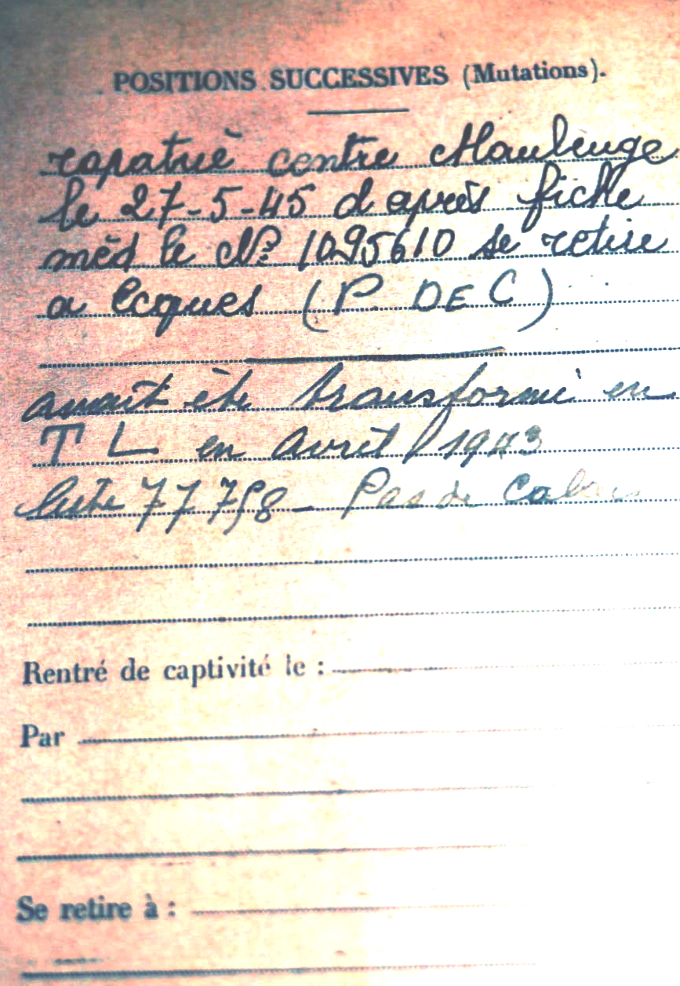 POSITIONS SUCCESSIVES (Mutations).
rapatrié centre Maubeuge
le 27-5-45 d après fiche
méd le No 1095610 se retire
a Ecques (P. DE C)
avait été transformé en
T L en Avril 1943
liste 77758 - Pas de Calais
Rentré de captivité le :
Par
Se retire à :